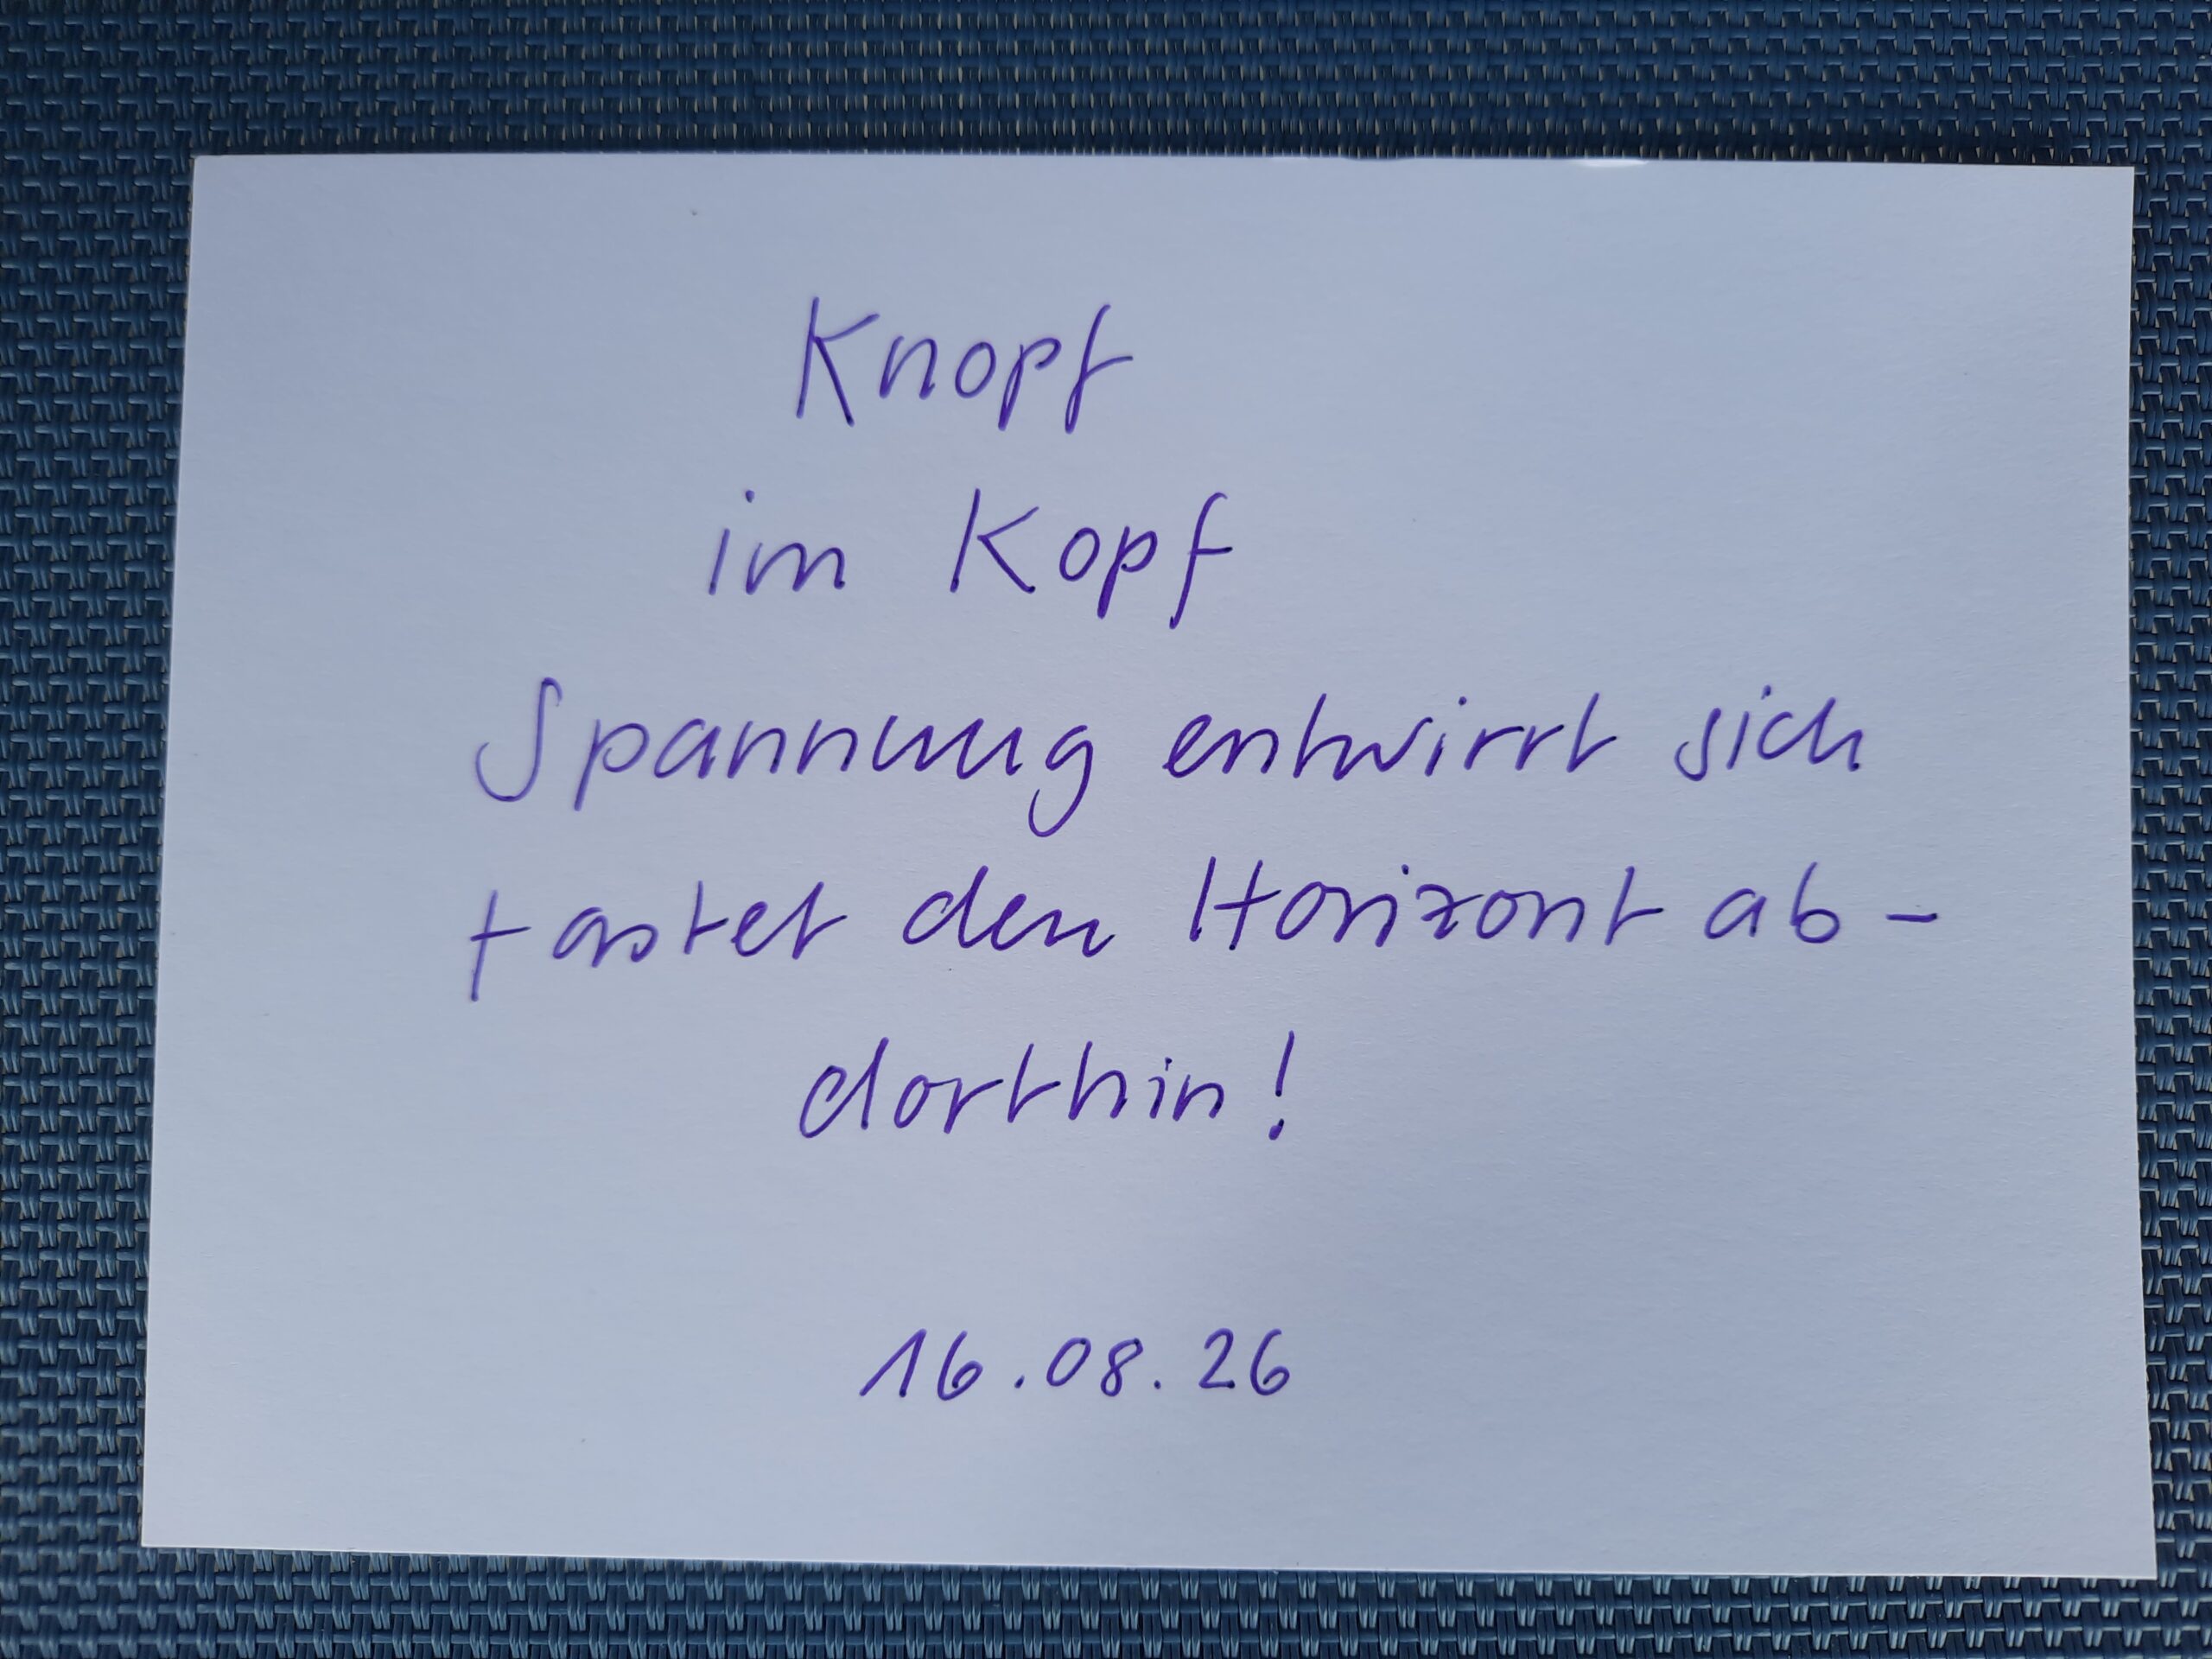 Knopf
im Kopf
Spannung entwirrt sich
tastet den Horizont ab -
dorthin!
16.08.26